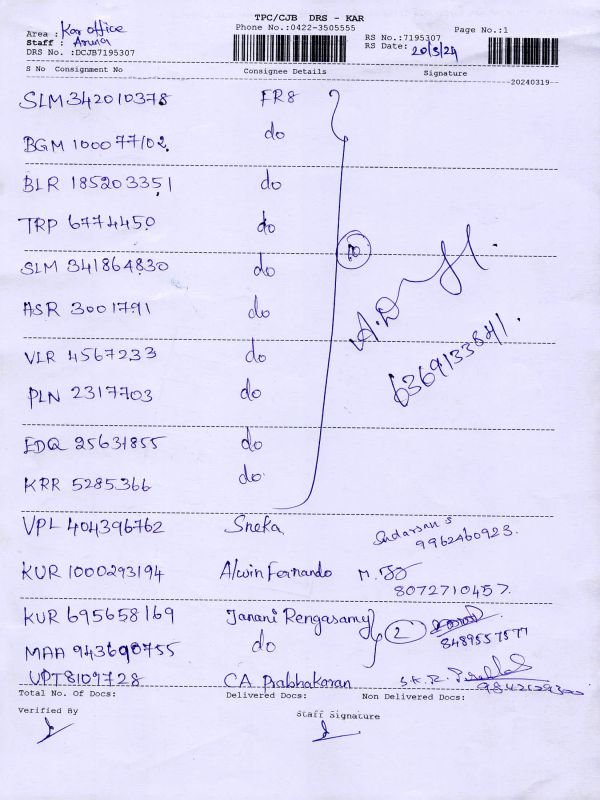 TPC/CJB DRS - KAR
Phone No.:0422-3505555
Page No.:1
Area : Kar office
Staff : Aruna
DRS No. :DCJB7195307
RS No.:7195307
RS Date: 20/3/24
S No Consignment No Consignee Details Signature
20240319
SLM 342010378 FR8
BGM 100077102 do
BLR 185203351 do
TRP 6774450 do
10
SLM 341864830 do
ASR 3001791 do
A.D
6369133841.
VLR 4567233 do
PLN 2317703 do
EDQ 25631855 do
KRR 5285366 do
VPL 404396762 Sneka Sudarsan s
9962460923.
KUR 1000293194 Alwin Fernando M.
8072710457.
KUR 695658169 Janani Rengasamy 2
8489557577
MAA 943690755 do
UPT8109728 CA Prabhakaran S.K.R.
9842129300
Total No. Of Docs: Delivered Docs: Non Delivered Docs:
Verified By Staff Signature